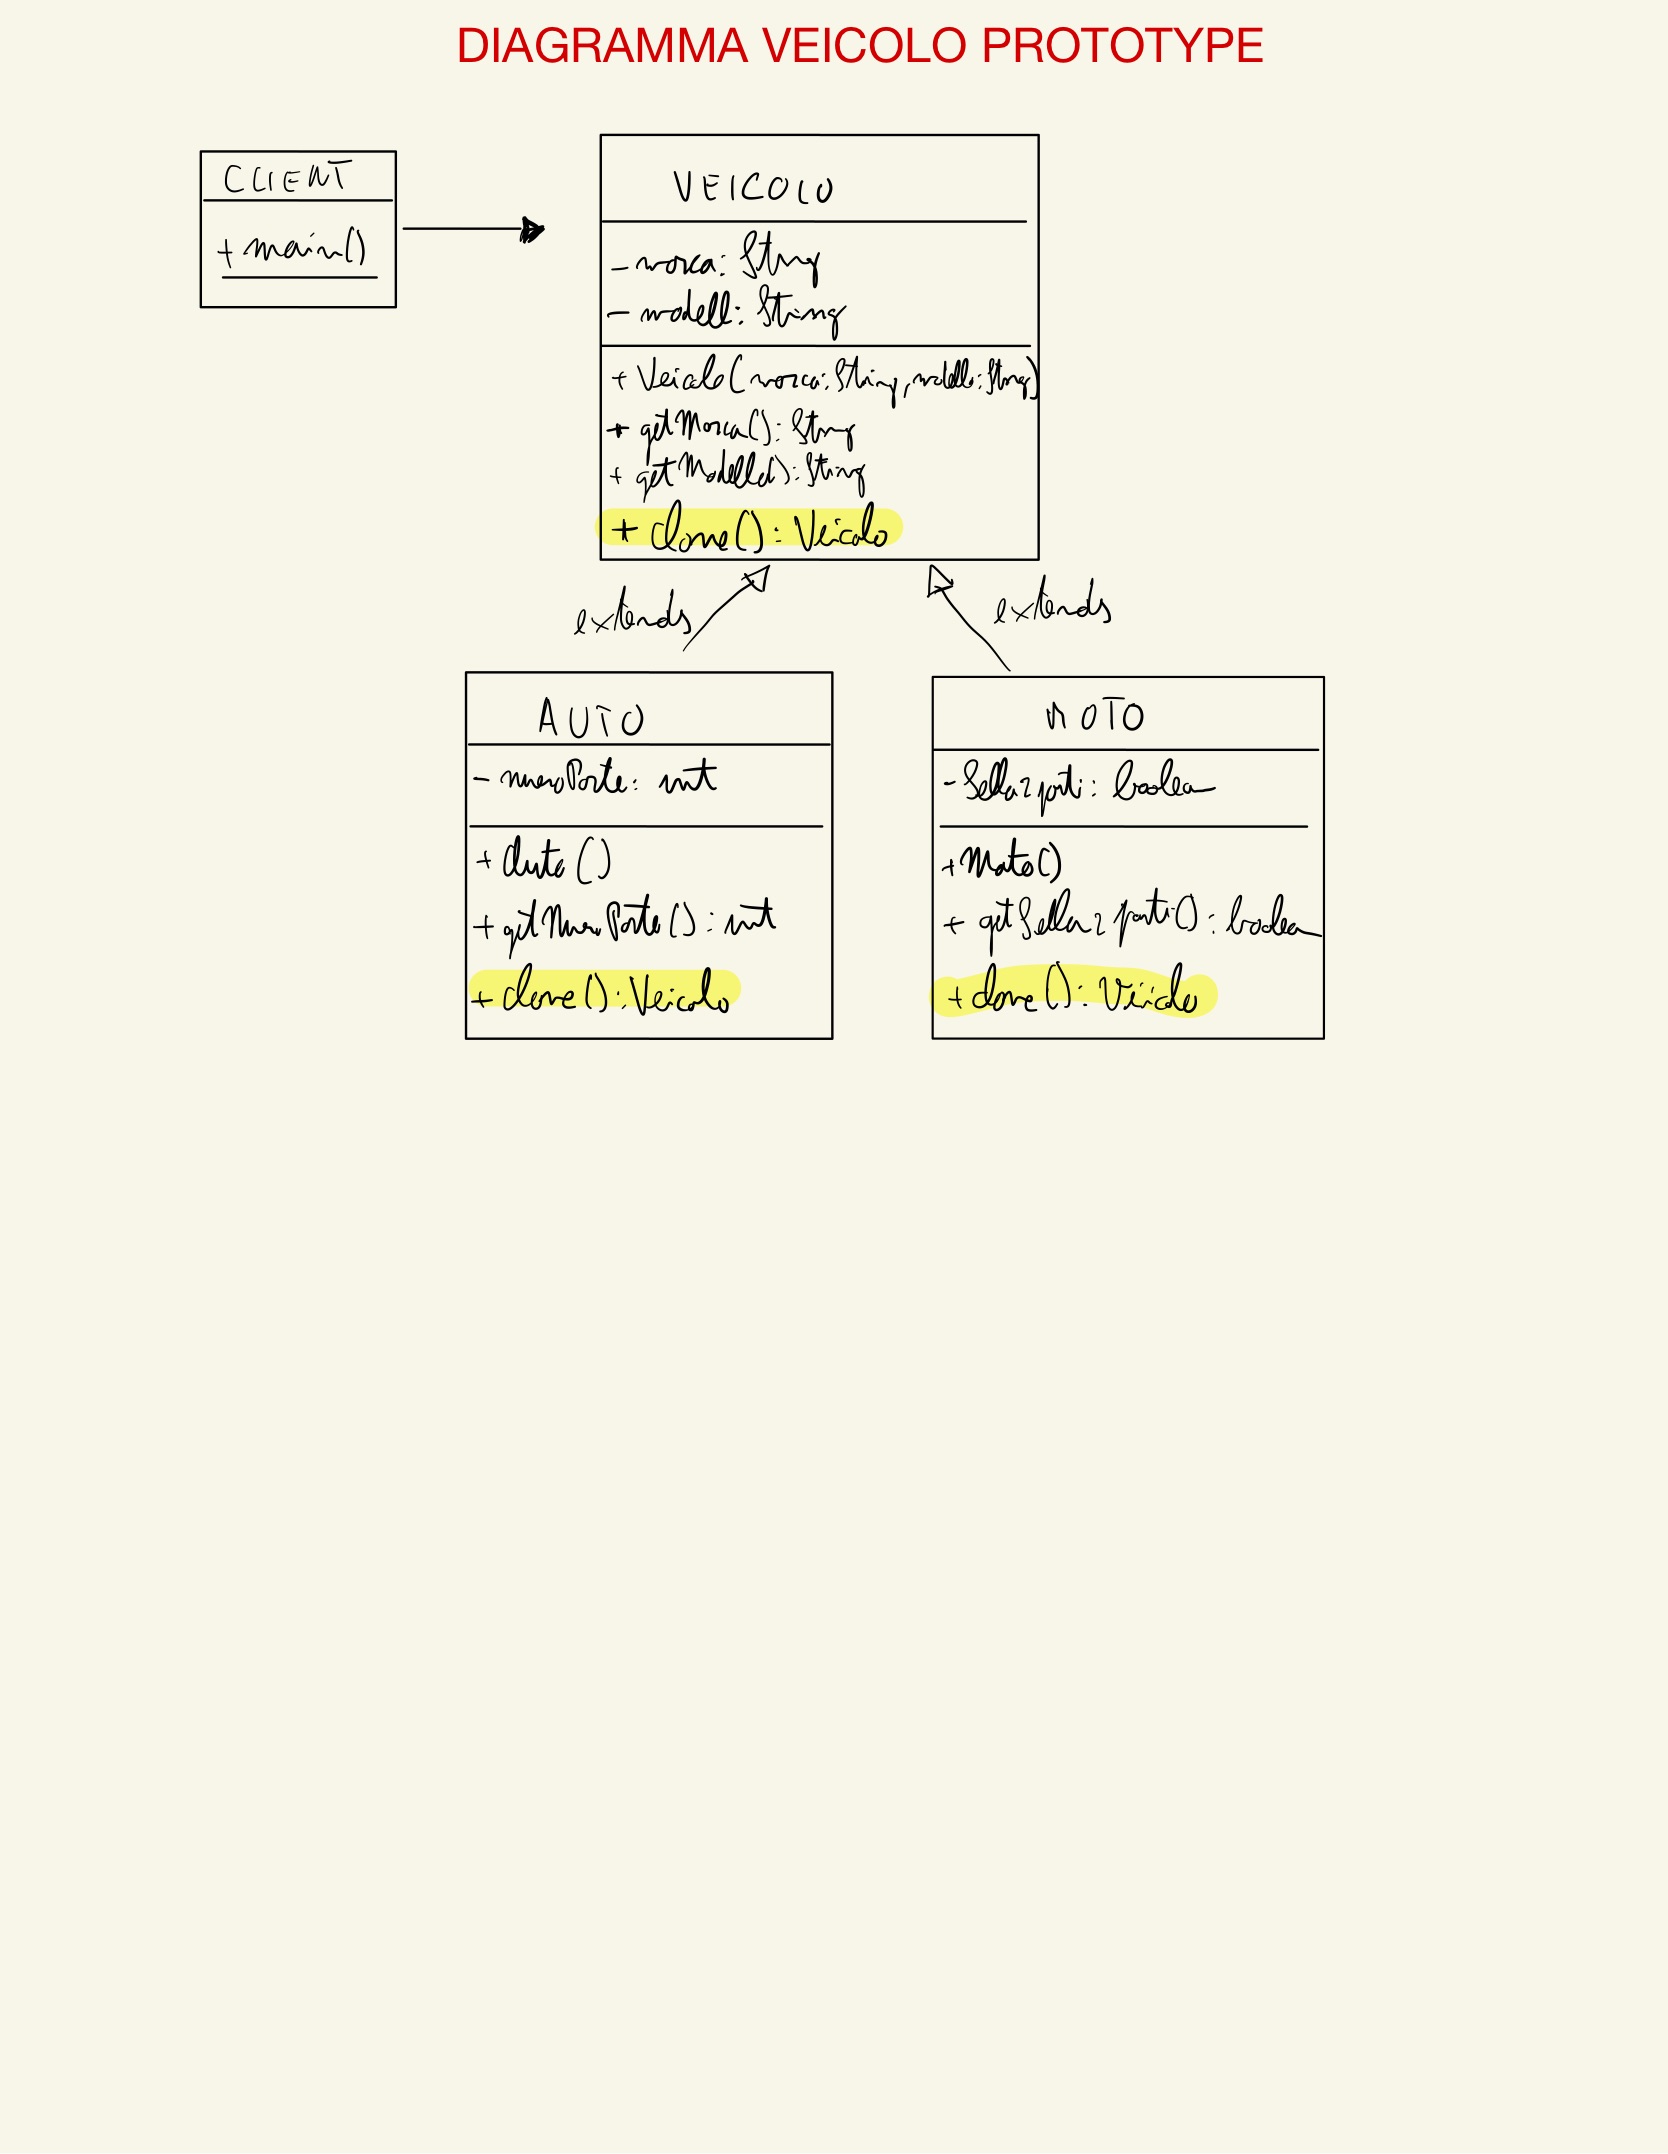 DIAGRAMMA VEICOLO PROTOTYPE
CLIENT
+ main()
VEICOLO
- marca: String
- modell: String
+ Veicolo(marca: String, modello: String)
+ getMarca(): String
+ getModello(): String
+ clone(): Veicolo
extends
extends
AUTO
- numeroPorte: int
+ Auto()
+ getNumeroPorte(): int
+ clone(): Veicolo
MOTO
- Sella2posti: boolean
+ Moto()
+ getSella2posti(): boolean
+ clone(): Veicolo